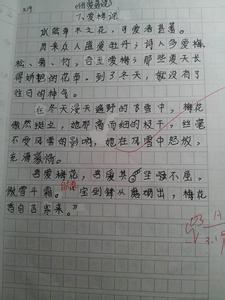 (仿爱莲说)
7.爱梅说
武陵草木之花,可爱者甚蕃。
月来众人道爱牡丹;诗人多爱梅、
松、菊、竹,余立爱梅;那些夏天长
得娇艳的花草。到了冬天,就没有了
往日的神气。
在冬天漫天遍野的飞雪中,梅花
傲然挺立,她那瘦而细的枝干,丝毫
不受风雪的影响,她在风雪中怒放,
充满豪情。
吾爱梅花,吾爱其坚强不屈,
傲雪斗霜。宝剑锋从磨砺出,梅花
香自苦寒来。"